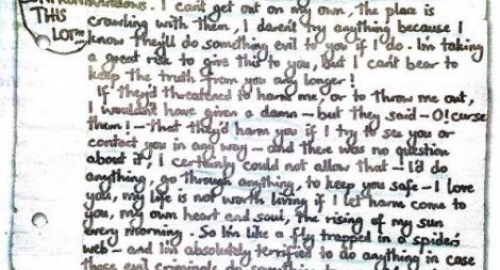 windows. I can't get out on my own, the place is
THIS
crawling with them, I daren't try anything because I
LOT
know they'll do something evil to you if I do - I'm taking
a great risk to give this to you, but I can't bear to
keep the truth from you any longer!
If they'd threatened to harm me, or to throw me out,
I wouldn't have given a damn - but they said - O! curse
them! - That they'd harm you if I try to see you or
contact you in any way - and there was no question
about it, I certainly could not allow that - I'd do
anything, go through anything, to keep you safe - I love
you, my life is not worth living if I let harm come to
you, my own heart and soul, the rising of my sun
every morning. So I'm like a fly trapped in a spider's
web - and I'm absolutely terrified to do anything in case
these evil criminals do something to